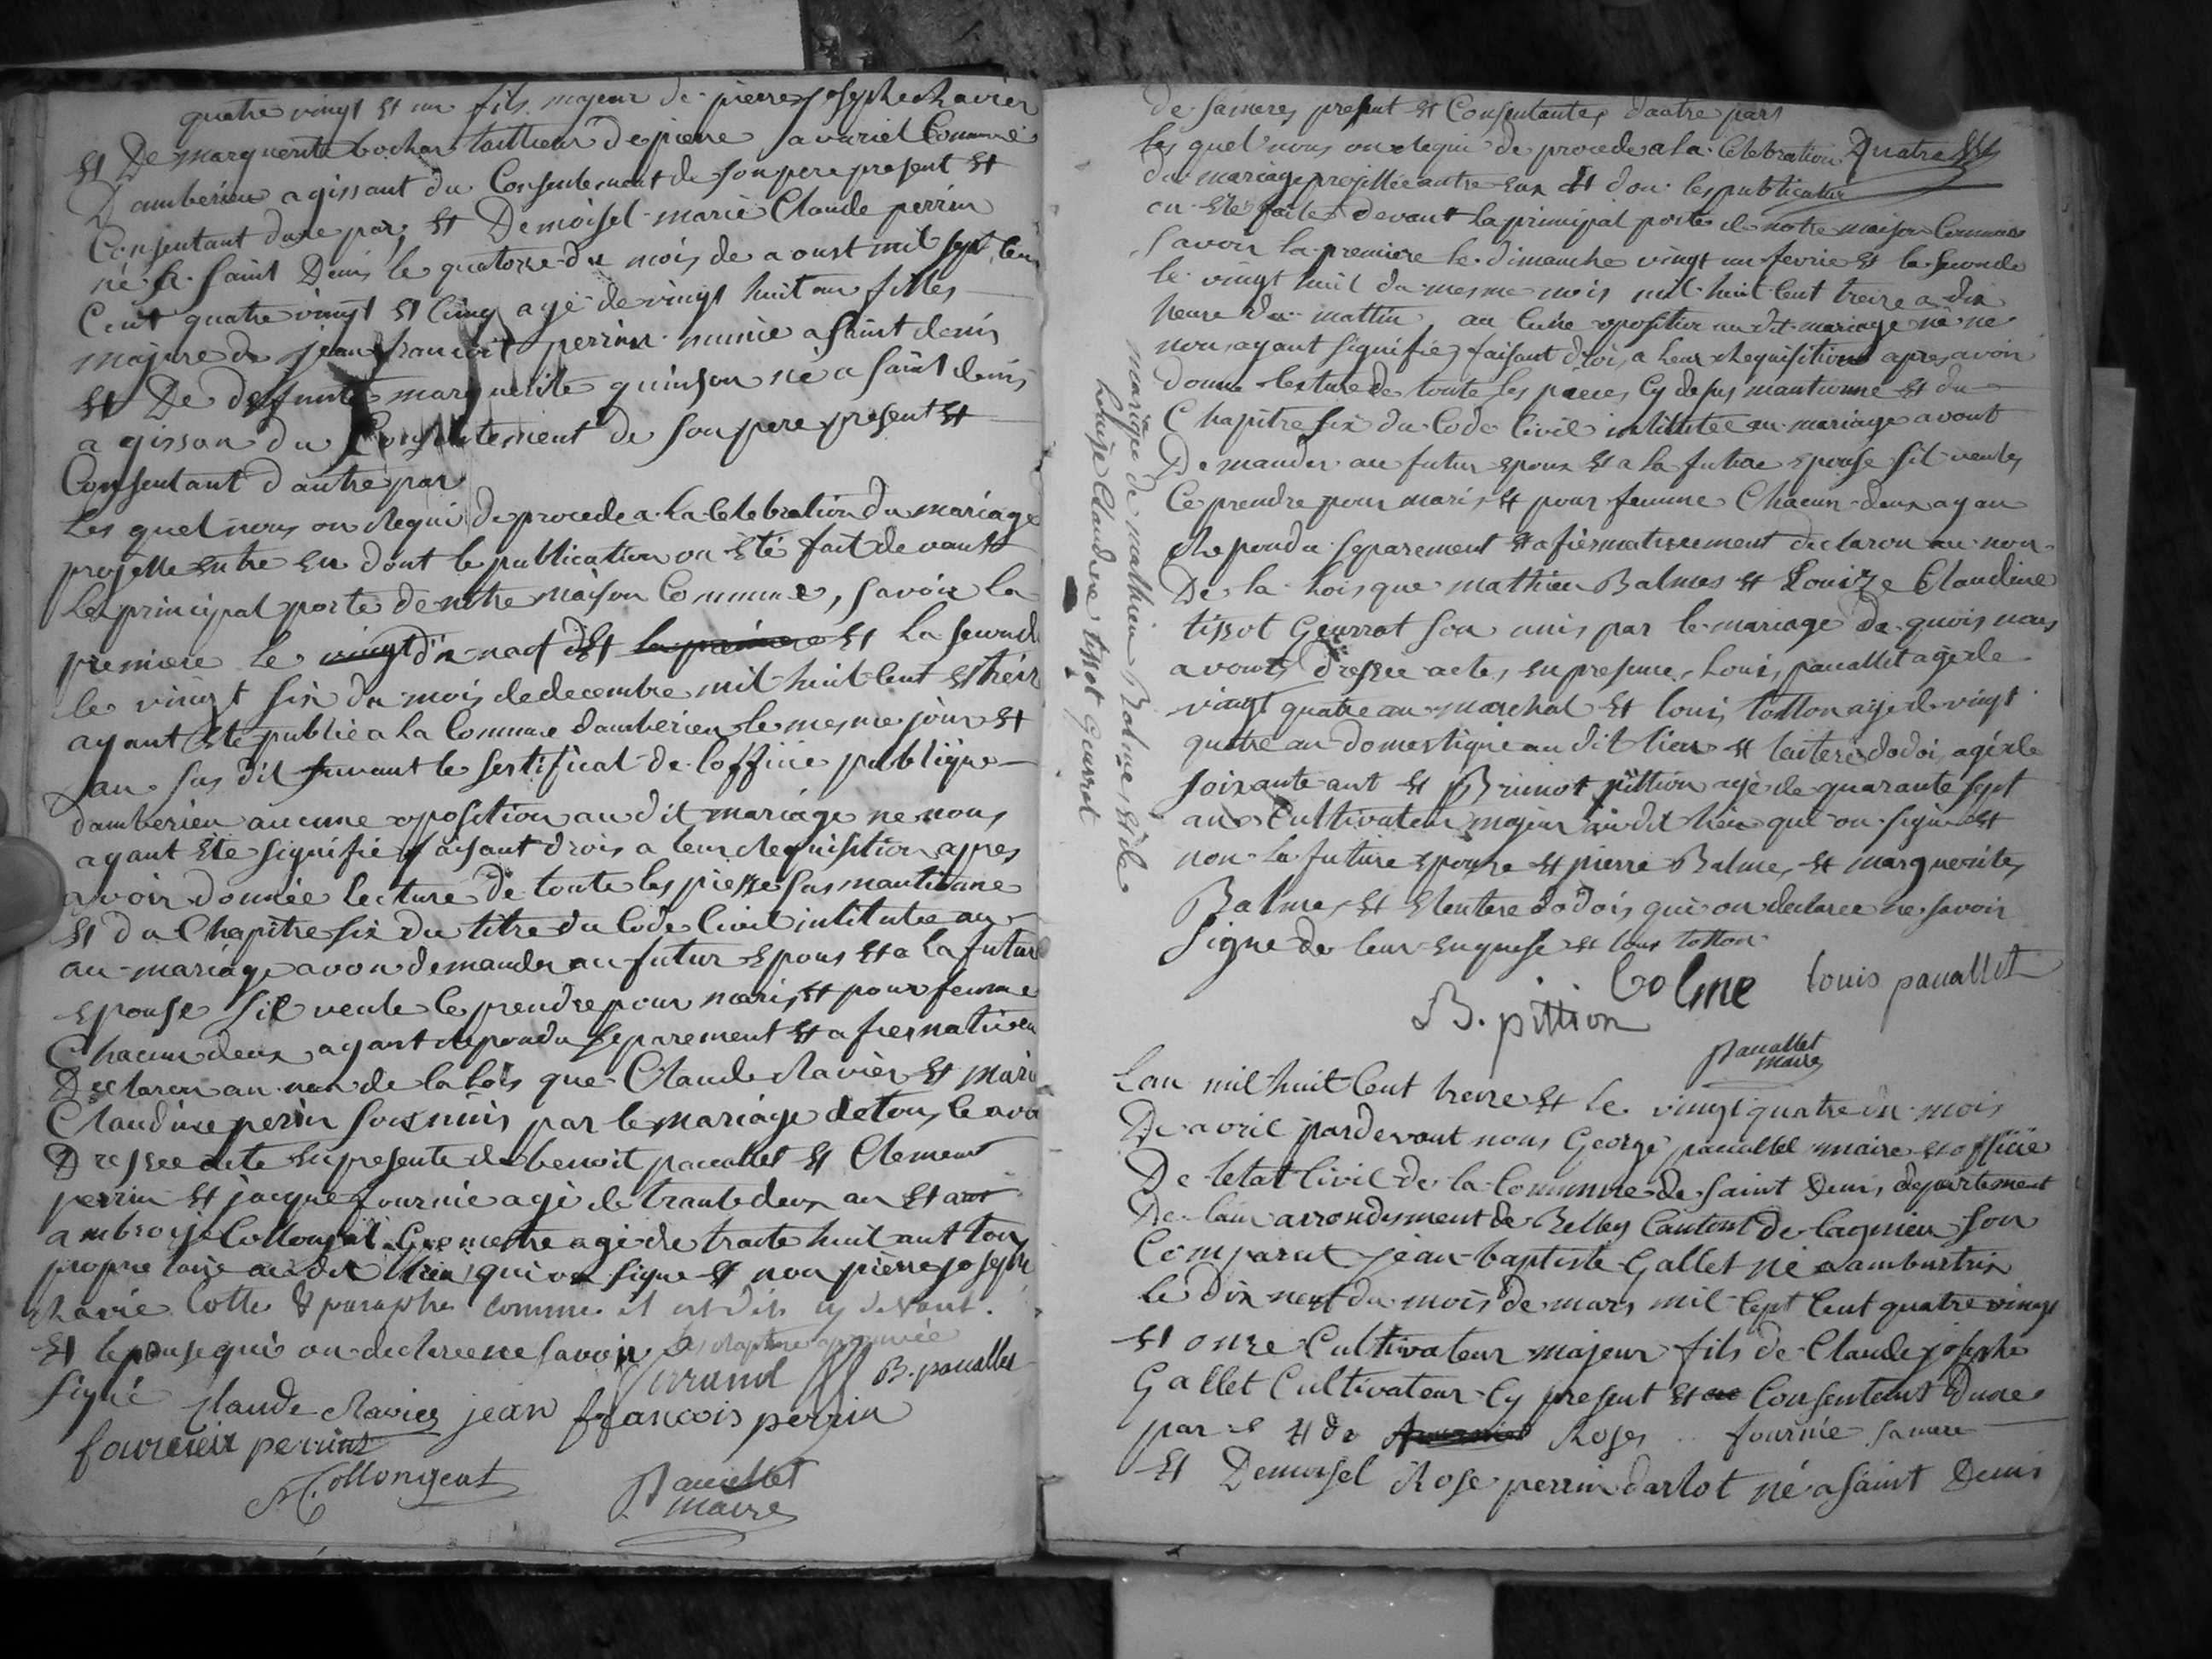 quatre vingt et un fils majeur de pierre josephe Ravier
et De marguerite bochar taillieur de pierre savariel Commune
D'amberieu agissant du Consentement de son pere present et
Consentant dune par, et Demoisel marie Claude perrin
né a saint Denis le quatorze du mois de aoust mil sept cen
Cent quatre vingt et Cinq agé de vingt huit an filles
majure de jean francoit perrin munié a saint denis
et De defunte marguerite quinson né a saint denis
agissan du Consentement de son pere present et
Consentant d'autre par
Les quel nous on Requi de procede a la Celebration du mariage
projette entre eu dont le publication on été fait devant
le principal porte de notre maison Commune, savoir la
premiere le dix neuf et la second
le vingt six du mois de decembre mil huit cent et treiz
ayant été publié a la Commune d'amberieu le mesme jour et
an sus dit suivant le sertificat de l'officie publique
d'amberieu aucune oposition au dit mariage ne nous
ayant été signifié faisant drois a leur Requisition apres
avoir donnée lecture de toute les piesse sus mantionne
et du Chapitre six du titre du Code Civil intitutée au
au mariage avon demander au futur epous et a la future
epouse sil veule ce prendre pour mari et pour femme
Chacun deux ayant repondu separement et afiermativem
Declaron au nom de la lois que Claude Ravier et mari
Claudine perin son unis par le mariage de tou le avo
Dressee acte en presente de benoit paccallet et Clement
perrin et jacque fournié agé de trante deux an et
ambroise Collonjat Geometre agé de trante huit ant tou
proprietaire au dit lieu qui on signe et non pierre joseph
Ravié Cotté & paraphé comme il est dit cy devant.
et lepouse qui on declaree ne savoir
signé Claude Ravier jean francois perrin B. pacallet
perrin
Collongeat Pacallet
maire
de sa mere, present et Consentante, dautre part
les quel nous on requi de procede a la Celebration Quatre
du mariage projettée antre eux et don les publication
on été faite devant la principal porte de notre maison Commune
savoir la premiere le dimanche vingt un fevrie et la seconde
le vingt huit du mesme mois mil huit cent treize a dix
heure du mattin, au cune oposition au dit mariage ne ne
nou ayant signifié, faisant droi, a leur Requisition apres avoir
donne lecture de toute les piece, Cy desus mantionne et du
Chapitre six du Code Civil intitutée au mariage avont
Demander au futur epoux et a la future epouse sil veule,
Ce prendre pour maris et pour femme Chacun deux ayan
Repondu separement et afiermativement declaron au nom
De la lois que mathieu Balmes et Louize Claudine
tissot Geurrat son unis par le mariage de quois nous
avont dressée acte, en presence, Louis pacallet agé de
vingt quatre an marchal et louis totton agé de vingt
quatre an domestique au dit lieu et dodoi, agé de
soixante ant et Brunot pittion agé de quarante sept
ans Cultivateur majeur au dit lieu qui on signe et
non la future epouse et pierre Balme, et marguerite,
Balme, et dodois qui on declaree ne savoir
signe de leur enquise et loui totton
B. pittion balme louis pacallet
Pacallet
maire
mariage de mathieu Balme et de
louise Claudine tissot Geurrat
Lan mil huit Cent treize et le vingt quatre du mois
De avril pardevant nous George pacallet maire et officié
De letat Civil de la Commune de Saint Denis departement
De lain arrondisment de Belley Cantont de lagnieu son
Comparut jean baptiste Gallet né a ambustrix
le dix neuf du mois de mars mil sept Cent quatre vingt
et onze Cultivateur majeur fils de Claude josephe
Gallet Cultivateur Cy present et Consentant Dune
par et de Roses fournie sa mere
et Demoisel Rose perrin darlot né a saint Denis